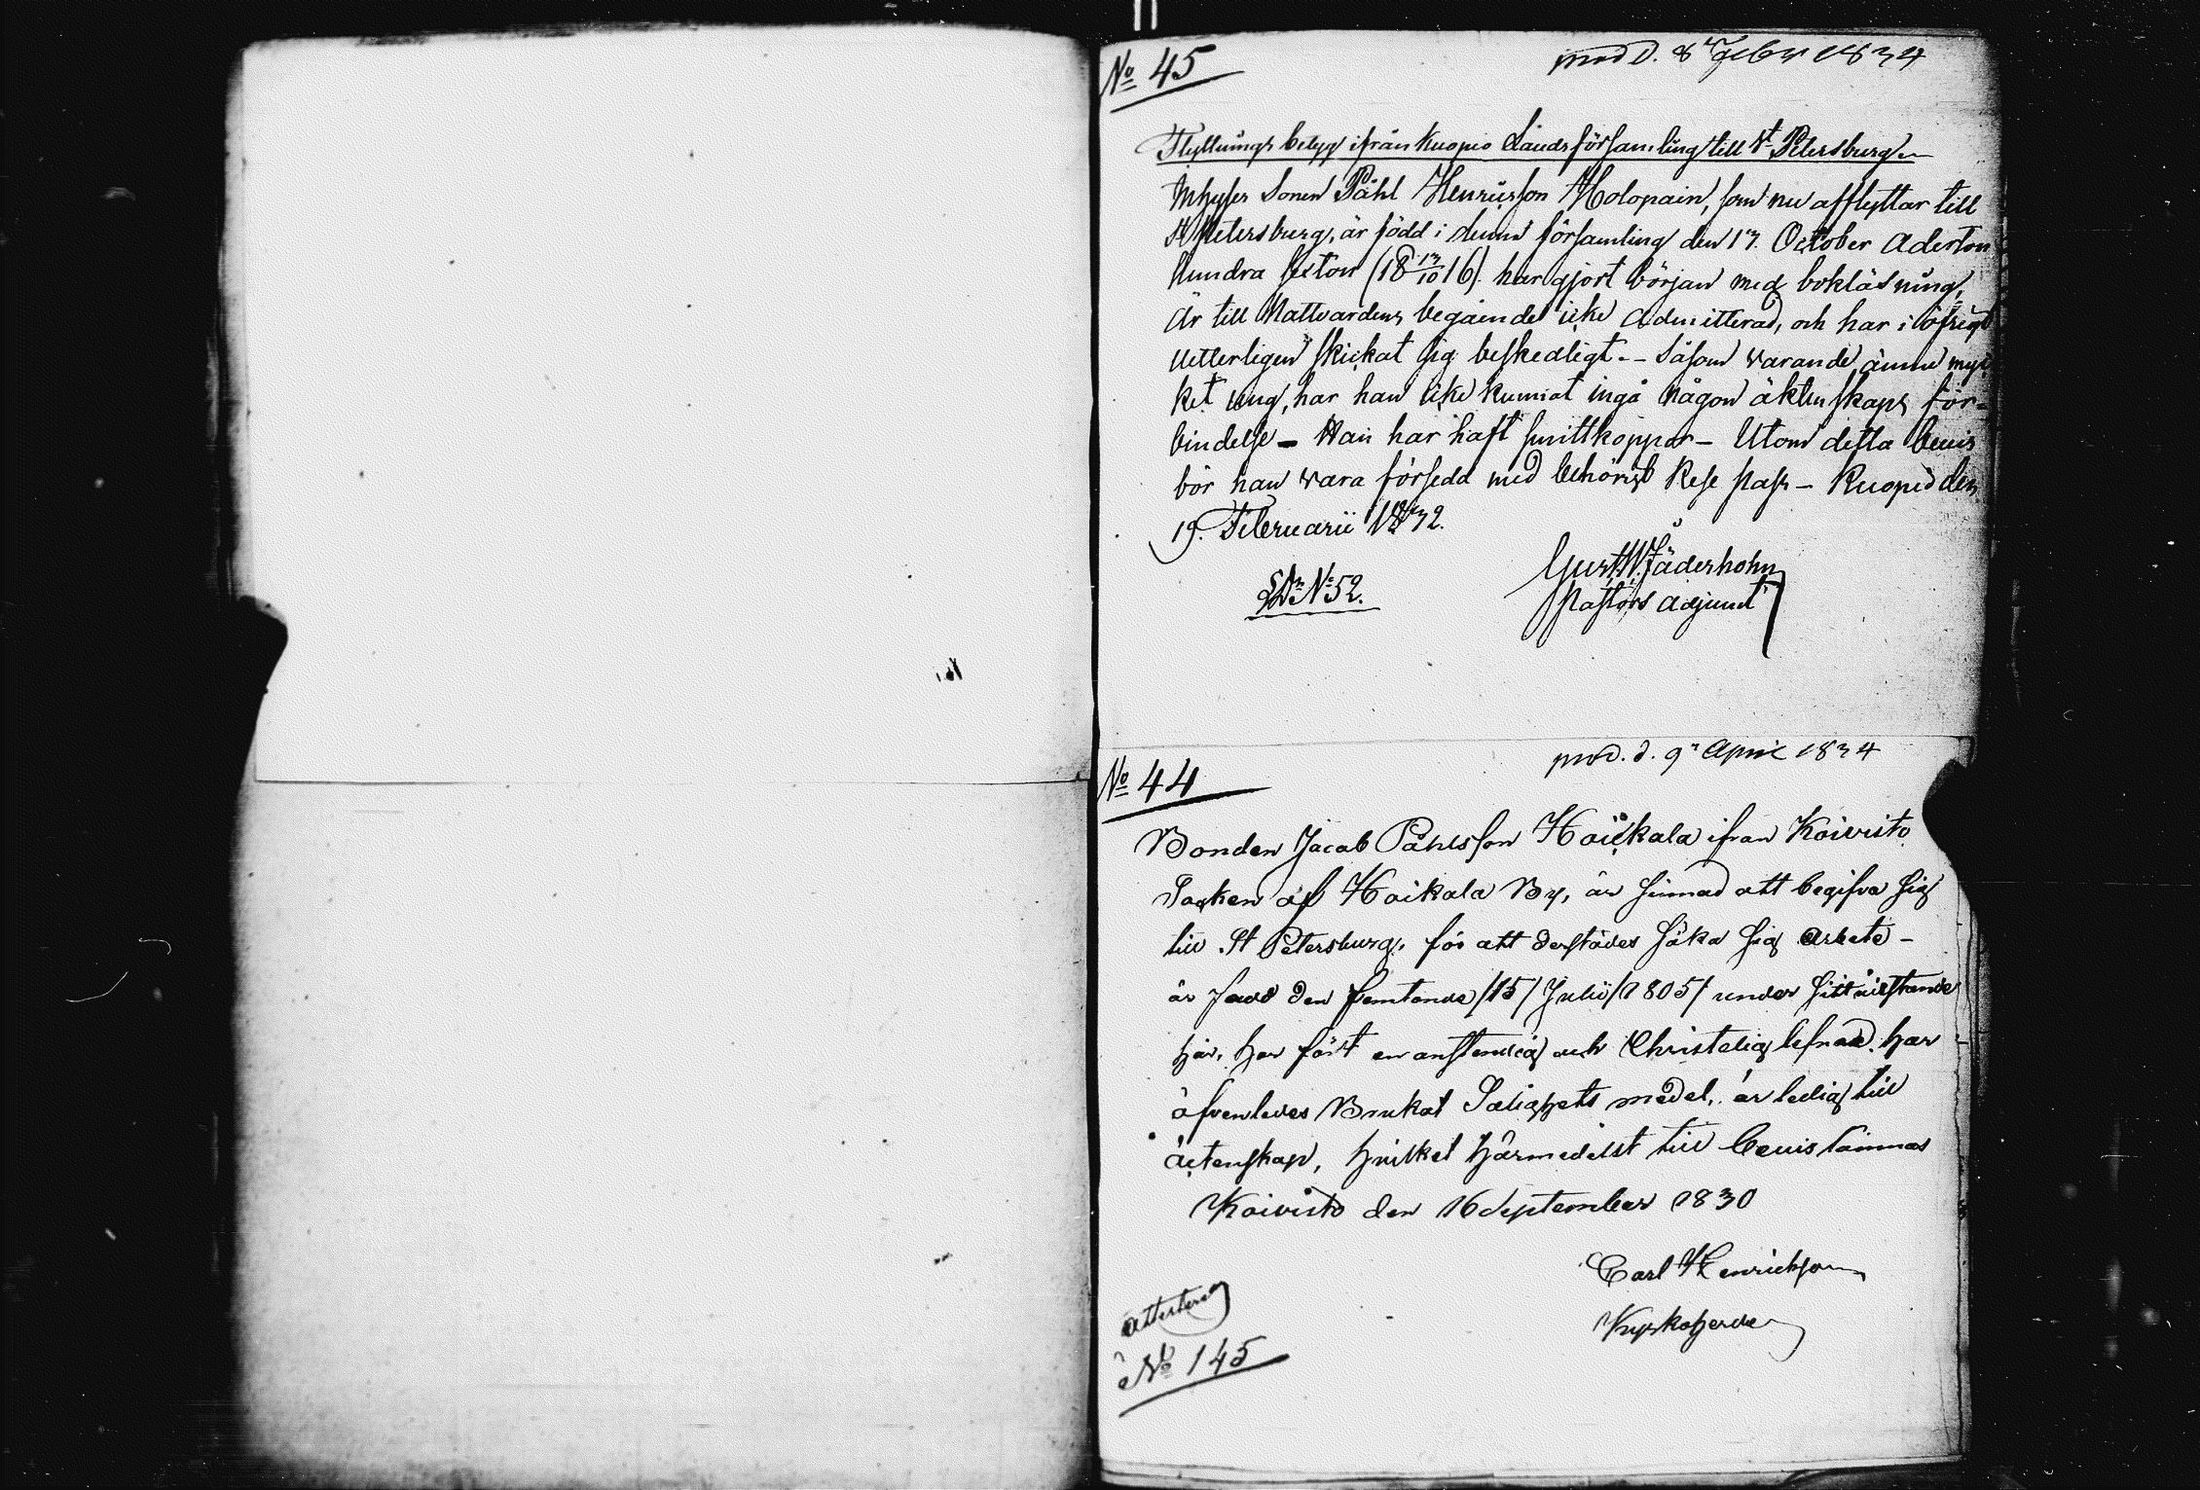 No 45
prod d. 8 Febr 1834
Flyttnings betyg ifrån Kuopio Landsförsamling till St Petersburg
Inhyses Sonen Påhl Henricsson Holopain, som nu afflyttar till
St Petersburg, är född i denna församling den 13 October Aderton
hundra sexton (18 13/10 16). har gjort början med bokläsning,
Är till Nattvardens begående icke Admitterad, och har i öfrigt
vetterligen skickat sig beskedligt. - Såsom varande ännu myc
ket ung, har han icke kunnat ingå någon äktenskaps för-
bindelse - Han har haft smittkoppor - Utom detta bevis
bör han vara försedd med behörigt Rese Pass - Kuopio den
19. Februarii 1832.
No 52.
Gust. W. Fäderholm
Pastors Adjunct
prod. d. 9 April 1834
No 44
Bonden Jacob Påhlsson Hoickala ifrån Koivisto
Socken af Hoikala By, är sinnad att begifva sig
till St Petersburg, för att derstädes söka sig arbete -
är född den femtonde /15/ Julii /1805/ under sitt vistande
här, har fört en anstendig och Christelig lefnad. har
äfvenledes Brukat Salighets medel, är ledig till
äctenskap, hvilket härmedelst till bevis lämnas
Koivisto den 16 September 1830
Carl Henrichson
Kyrkoherde
attesterad
No 145